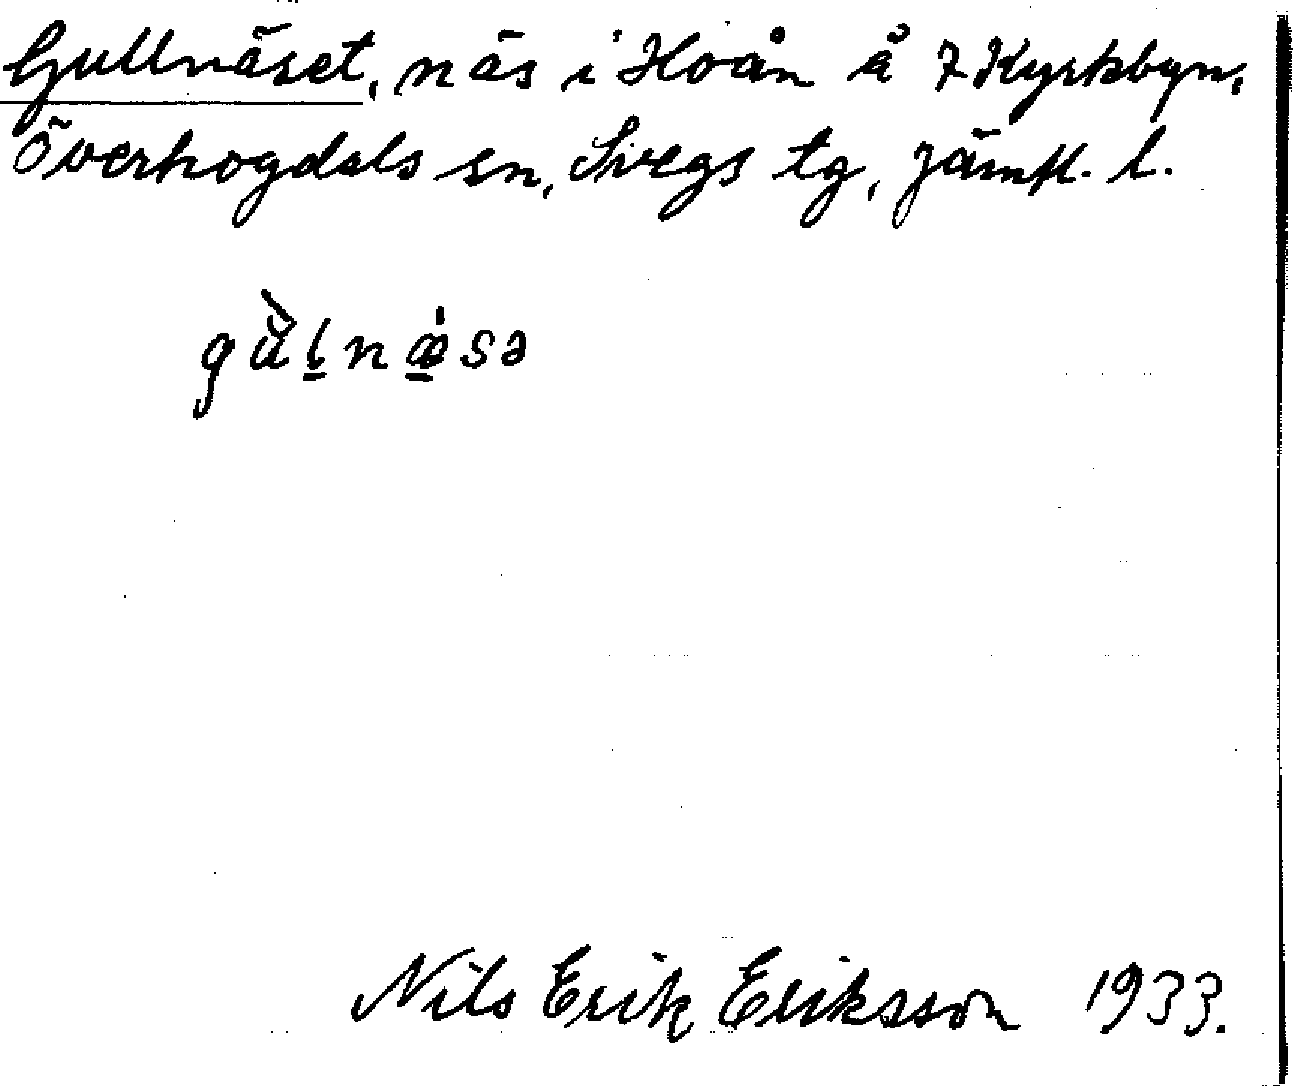 Gullnäset, näs i Hoån å 7 Kyrkbyn,
Överhogdals sn, Svegs tg, Jämtl. l.
gù̀l̠næ̠̇sə
Nils Erik Eriksson 1933.